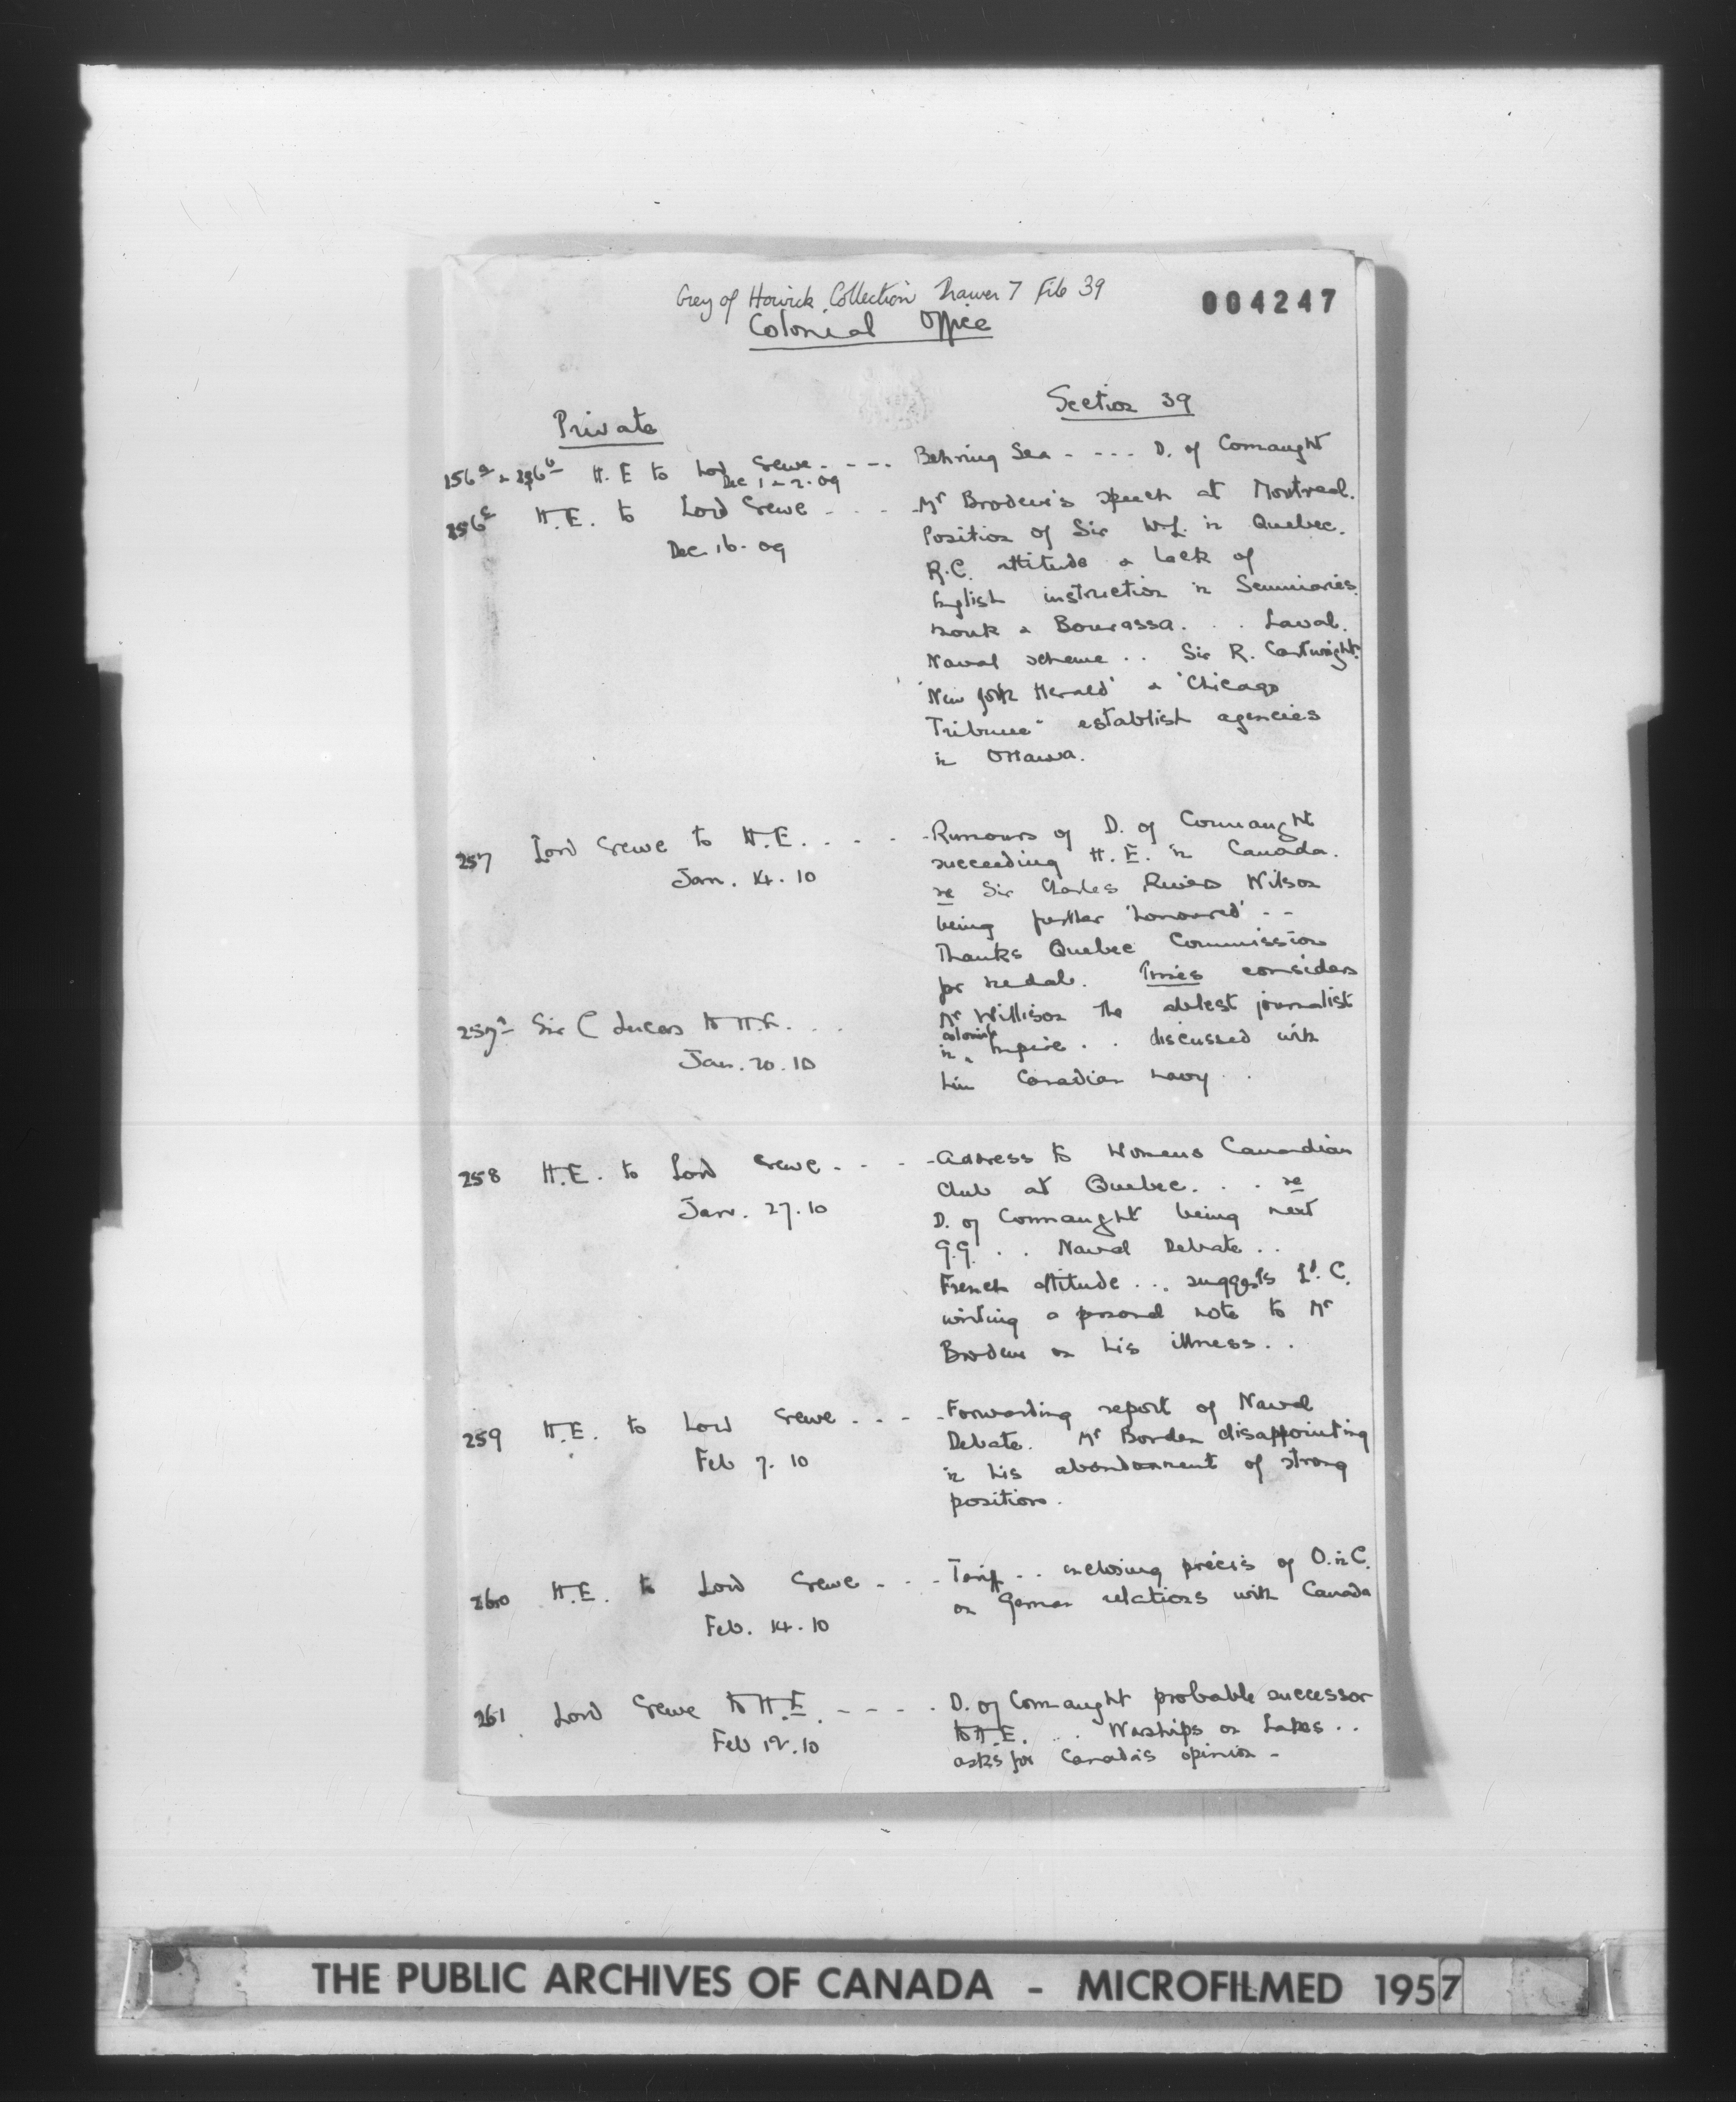 Grey of Howick Collection Drawer 7 File 39
004247
Colonial Office
Section 39
Private
256a & 256b H.E to Lord Crewe - - - Behring Sea - - - - D. of Connaught
Dec 1 & 2. 09
256c H.E. to Lord Crewe - - - Mr Brodeur's speech at Montreal.
Dec 16. 09
Position of Sir W.L. in Quebec.
R.C. attitude & lack of
English instruction in Seminaries.
Monk & Bourassa. . . Laval.
Naval scheme . . Sir R. Cartwright.
'New York Herald' & 'Chicago
Tribune' establish agencies
in Ottawa.
257 Lord Crewe to H.E. . - - - Rumours of D. of Connaught
Jan. 14. 10
succeeding H.E. in Canada.
re Sir Charles Rivers Wilson
being further 'honoured' - -
Thanks Quebec Commission
for medal. Times considers
257a Sir C Lucas to H.E. . . . Mr Willison the ablest journalist
Jan. 20. 10
in colonial Empire . . discussed with
him Canadian navy . .
258 H.E. to Lord Crewe - - - - Address to Womens Canadian
Jan. 27. 10
Club at Quebec. . . re
D. of Connaught being next
G.G. . . Naval Debate . .
French attitude . . . suggests Ld. C.
writing a personal note to Mr
Brodeur on his illness. . .
259 H.E. to Lord Crewe . - - - Forwarding report of Naval
Feb 7. 10
Debate. Mr Borden disappointing
in his abandonment of strong
position.
260 H.E. to Lord Crewe - . . - Tariff . . enclosing précis of O.inC.
Feb. 14. 10
on German relations with Canada
261 Lord Crewe to H.E. - - - - D. of Connaught probable successor
Feb 12. 10
to H.E. . . . Warships on Lakes . .
asks for Canada's opinion -
THE PUBLIC ARCHIVES OF CANADA - MICROFILMED 1957